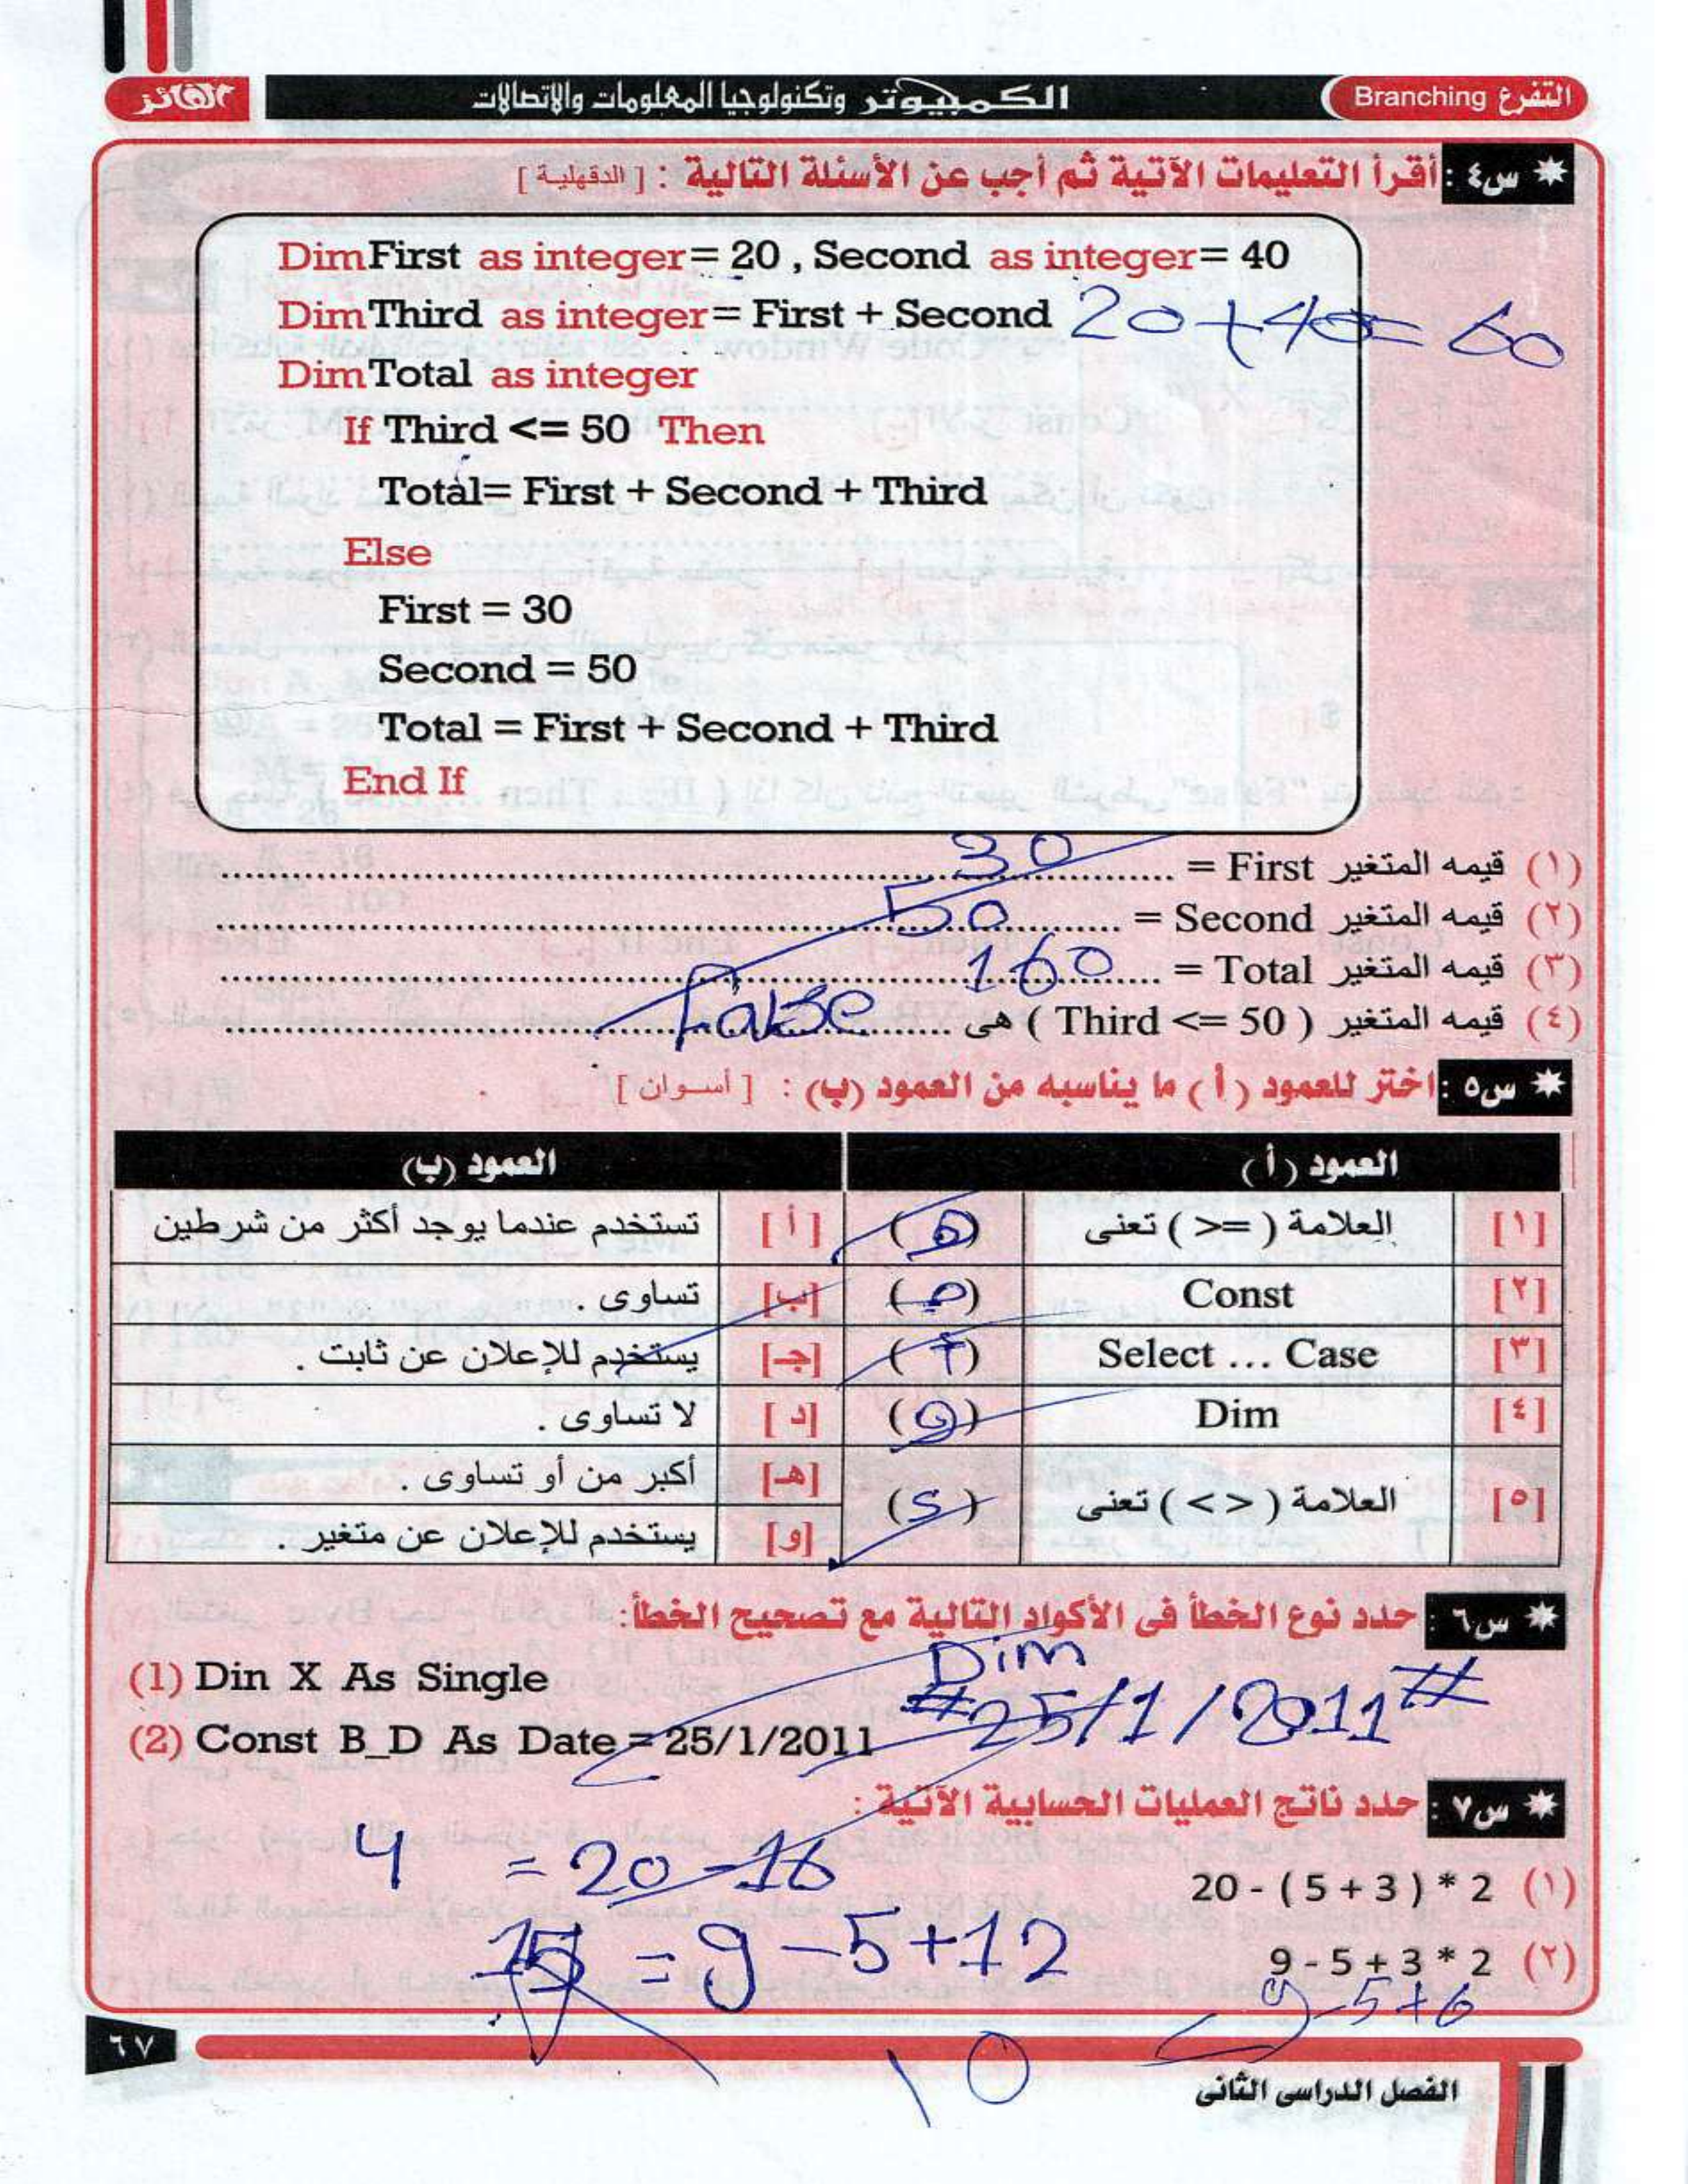 التفرع Branching
الكمبيوتر وتكنولوجيا المعلومات والاتصالات
الفائز
س٤ : أقرأ التعليمات الآتية ثم أجب عن الأسئلة التالية : [ الدقهلية ]
Dim First as integer= 20 , Second as integer= 40
Dim Third as integer= First + Second 20+40= 60
Dim Total as integer
If Third <= 50 Then
Total= First + Second + Third
Else
First = 30
Second = 50
Total = First + Second + Third
End If
(١) قيمه المتغير First = 30
(٢) قيمه المتغير Second = 50
(٣) قيمه المتغير Total = 160
(٤) قيمه المتغير ( Third <= 50 ) هى False
س٥ : اختر للعمود ( أ ) ما يناسبه من العمود (ب) : [ أسوان ]
العمود ( أ ) العمود (ب)
[١] العلامة ( >= ) تعنى (ه) [ أ ] تستخدم عندما يوجد أكثر من شرطين
[٢] Const (ج) [ب] تساوى .
[٣] Select ... Case (أ) [جـ] يستخدم للإعلان عن ثابت .
[٤] Dim (و) [ د ] لا تساوى .
[٥] العلامة ( < > ) تعنى (د) [هـ] أكبر من أو تساوى .
[و] يستخدم للإعلان عن متغير .
س٦ : حدد نوع الخطأ فى الأكواد التالية مع تصحيح الخطأ:
(1) Din X As Single Dim
(2) Const B_D As Date = 25/1/2011 #25/1/2011#
س٧ : حدد ناتج العمليات الحسابية الآتية :
(١) 20 - ( 5 + 3 ) * 2 = 20 - 16 4
(٢) 9 - 5 + 3 * 2 = 9 - 5 + 12
9 - 5 + 6
10
٦٧
الفصل الدراسى الثانى